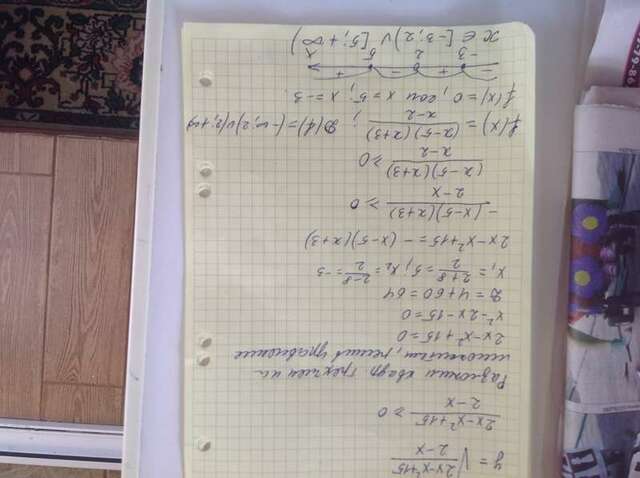 y = √((2x-x²+15)/(2-x))
(2x-x²+15)/(2-x) ≥ 0
Разложим квадр. трехчлен на
множители, решив уравнение
2x-x²+15=0
x²-2x-15=0
D=4+60=64
x₁ = (2+8)/2 = 5; x₂ = (2-8)/2 = -3
2x-x²+15 = -(x-5)(x+3)
-(x-5)(x+3)/(2-x) ≥ 0
(x-5)(x+3)/(x-2) ≥ 0
f(x) = (x-5)(x+3)/(x-2); D(f)=(-∞;2)∪(2;+∞)
f(x)=0, если x=5; x=-3.
- + - +
-3 2 5 x
x ∈ [-3; 2) ∪ [5; +∞)